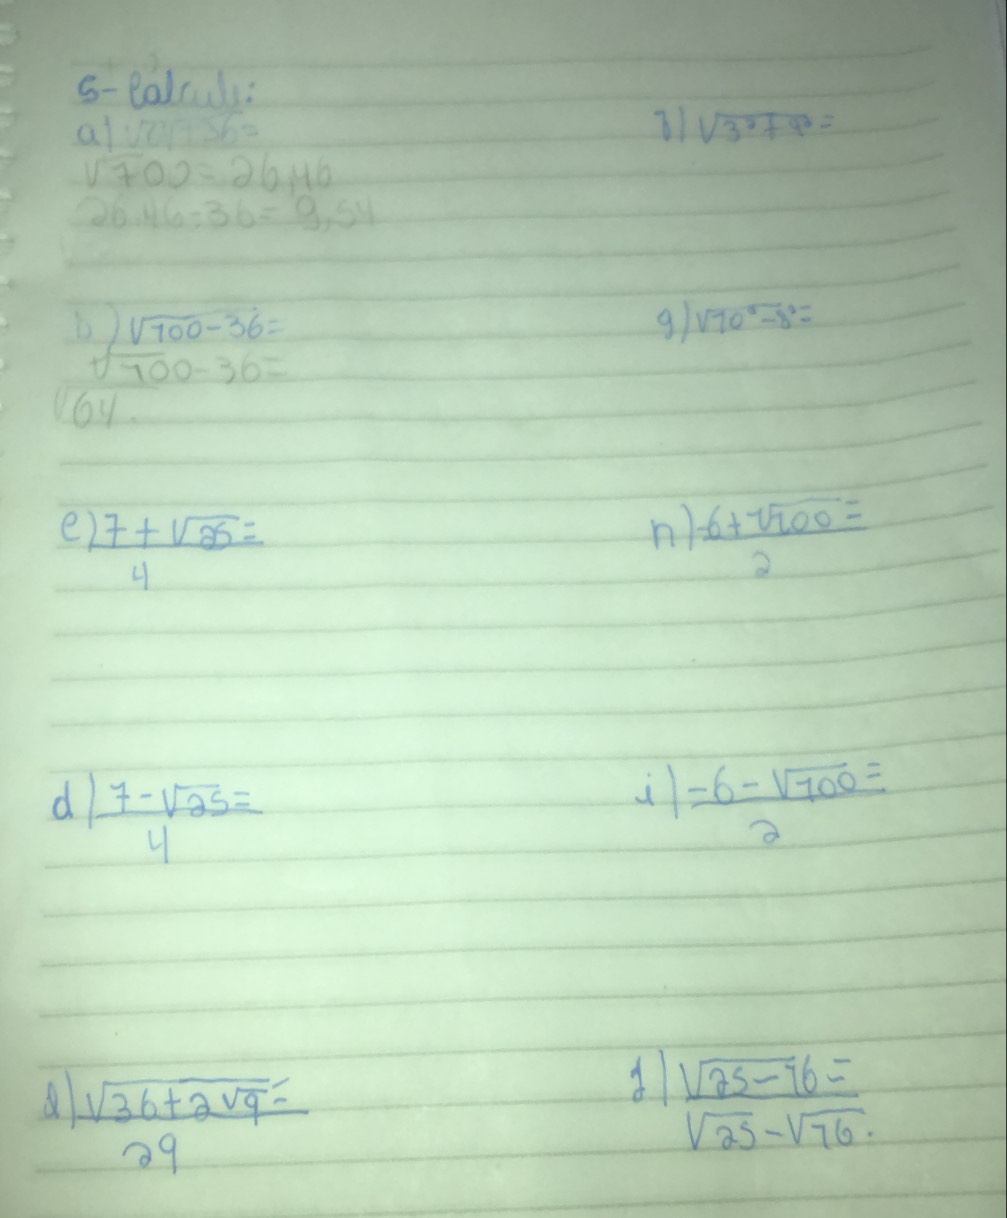 5-Calcule:
√700=26,46
26.46=36= 9,54
b) √100-36=
√100-36=
√64.
g) √10²-8²=
c) 7+√25=
4
h) -6+√100=
2
d) 7-√25=
4
i) -6-√100=
2
√36+2√9=
29
j) √25-16=
√25-√16.